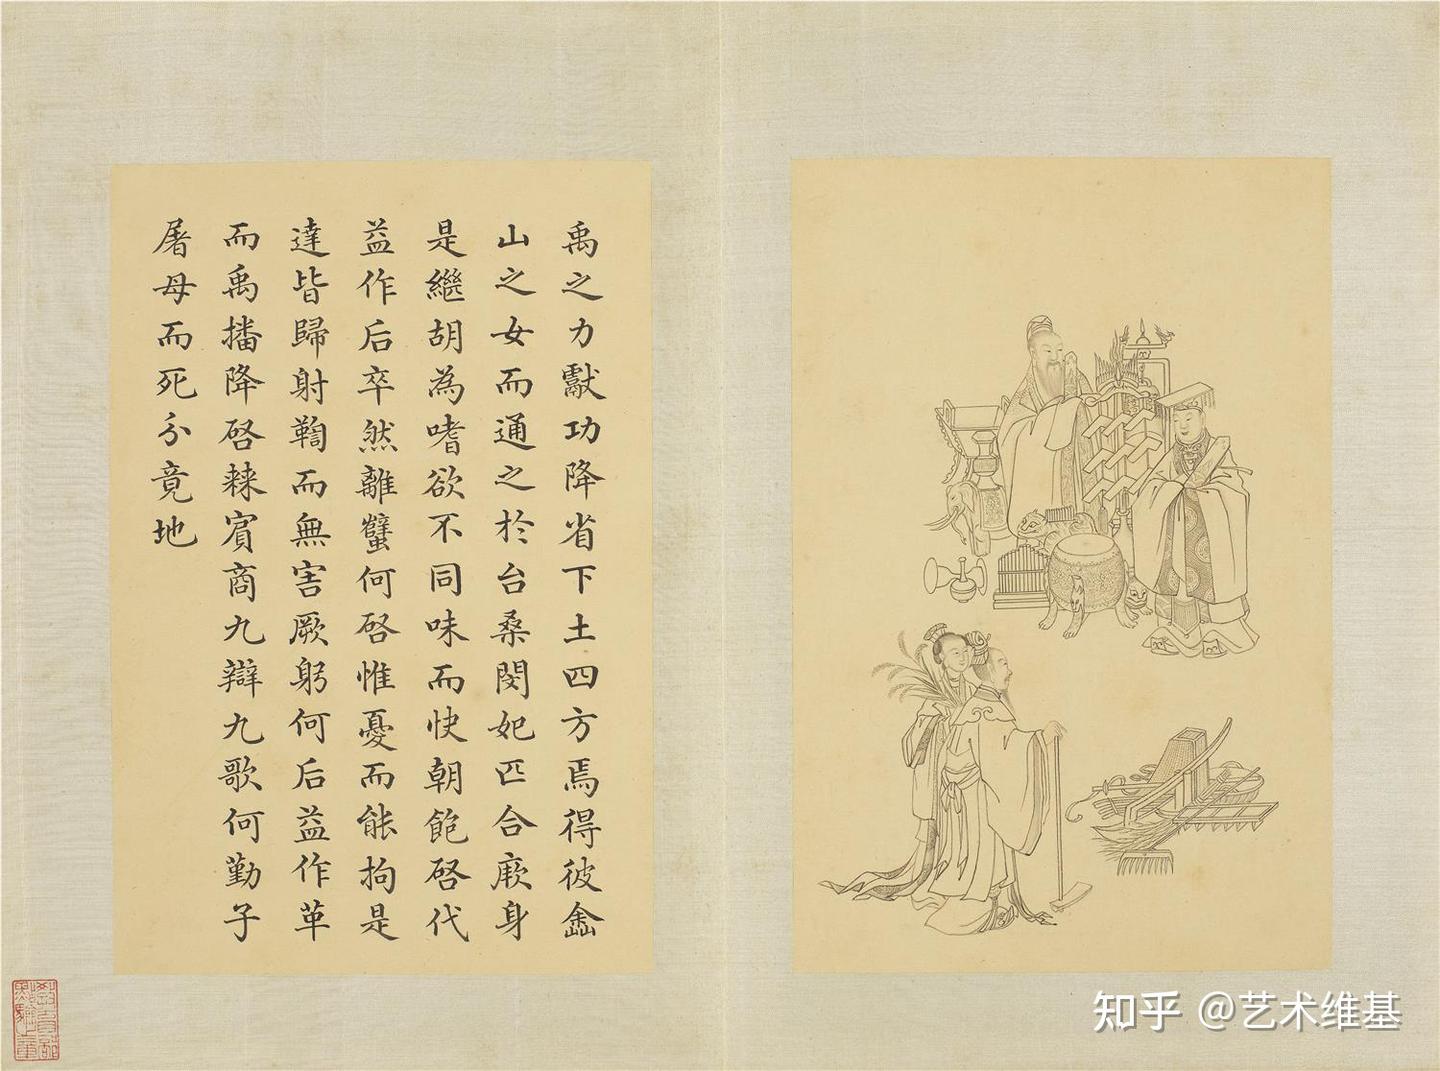 禹之力獻功降省下土四方焉得彼嵞
山之女而通之於台桑閔妃匹合厥身
是繼胡為嗜欲不同味而快朝飽啓代
益作后卒然離蠥何啓惟憂而能拘是
達皆歸射鞫而無害厥躬何后益作革
而禹播降啓棘賓商九辯九歌何勤子
屠母而死分竟地
知乎 @艺术维基